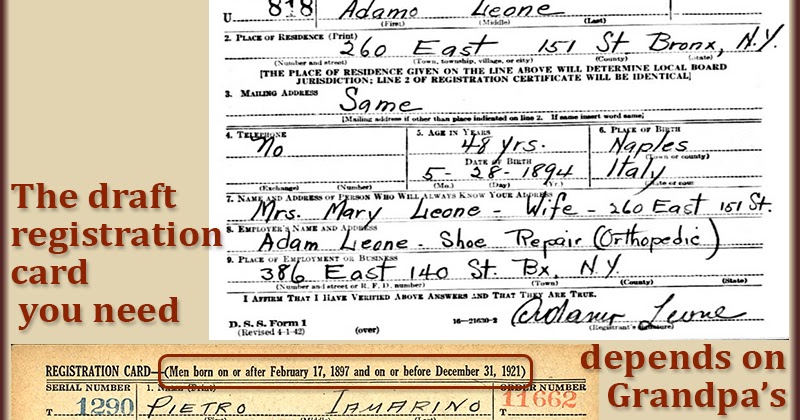 U 818 Adamo Leone
(First) (Middle) (Last)
2. PLACE OF RESIDENCE (Print)
260 East 151 St. Bronx, N.Y.
(Number and street) (Town, township, village, or city) (County) (State)
[THE PLACE OF RESIDENCE GIVEN ON THE LINE ABOVE WILL DETERMINE LOCAL BOARD
JURISDICTION; LINE 2 OF REGISTRATION CERTIFICATE WILL BE IDENTICAL]
3. MAILING ADDRESS
Same
[Mailing address if other than place indicated on line 2. If same insert word same]
4. TELEPHONE 5. AGE IN YEARS 6. PLACE OF BIRTH
No 48 yrs. Naples
DATE OF BIRTH (Town or county)
5-28-1894 Italy
(Exchange) (Number) (Mo.) (Day) (Yr.) (State or country)
7. NAME AND ADDRESS OF PERSON WHO WILL ALWAYS KNOW YOUR ADDRESS
Mrs. Mary Leone - Wife - 260 East 151 St.
8. EMPLOYER'S NAME AND ADDRESS
Adam Leone - Shoe Repair (Orthopedic)
9. PLACE OF EMPLOYMENT OR BUSINESS
386 East 140 St. Bx. N.Y.
(Number and street or R. F. D. number) (Town) (County) (State)
I AFFIRM THAT I HAVE VERIFIED ABOVE ANSWERS AND THAT THEY ARE TRUE.
Adamo Leone
D. S. S. Form 1 16—21630-2 (Registrant's signature)
(Revised 4-1-42) (over)
The draft
registration
card
you need
REGISTRATION CARD—(Men born on or after February 17, 1897 and on or before December 31, 1921)
SERIAL NUMBER 1. NAME (Print) ORDER NUMBER
T 1290 PIETRO IAMARINO T 11662
depends on
Grandpa's